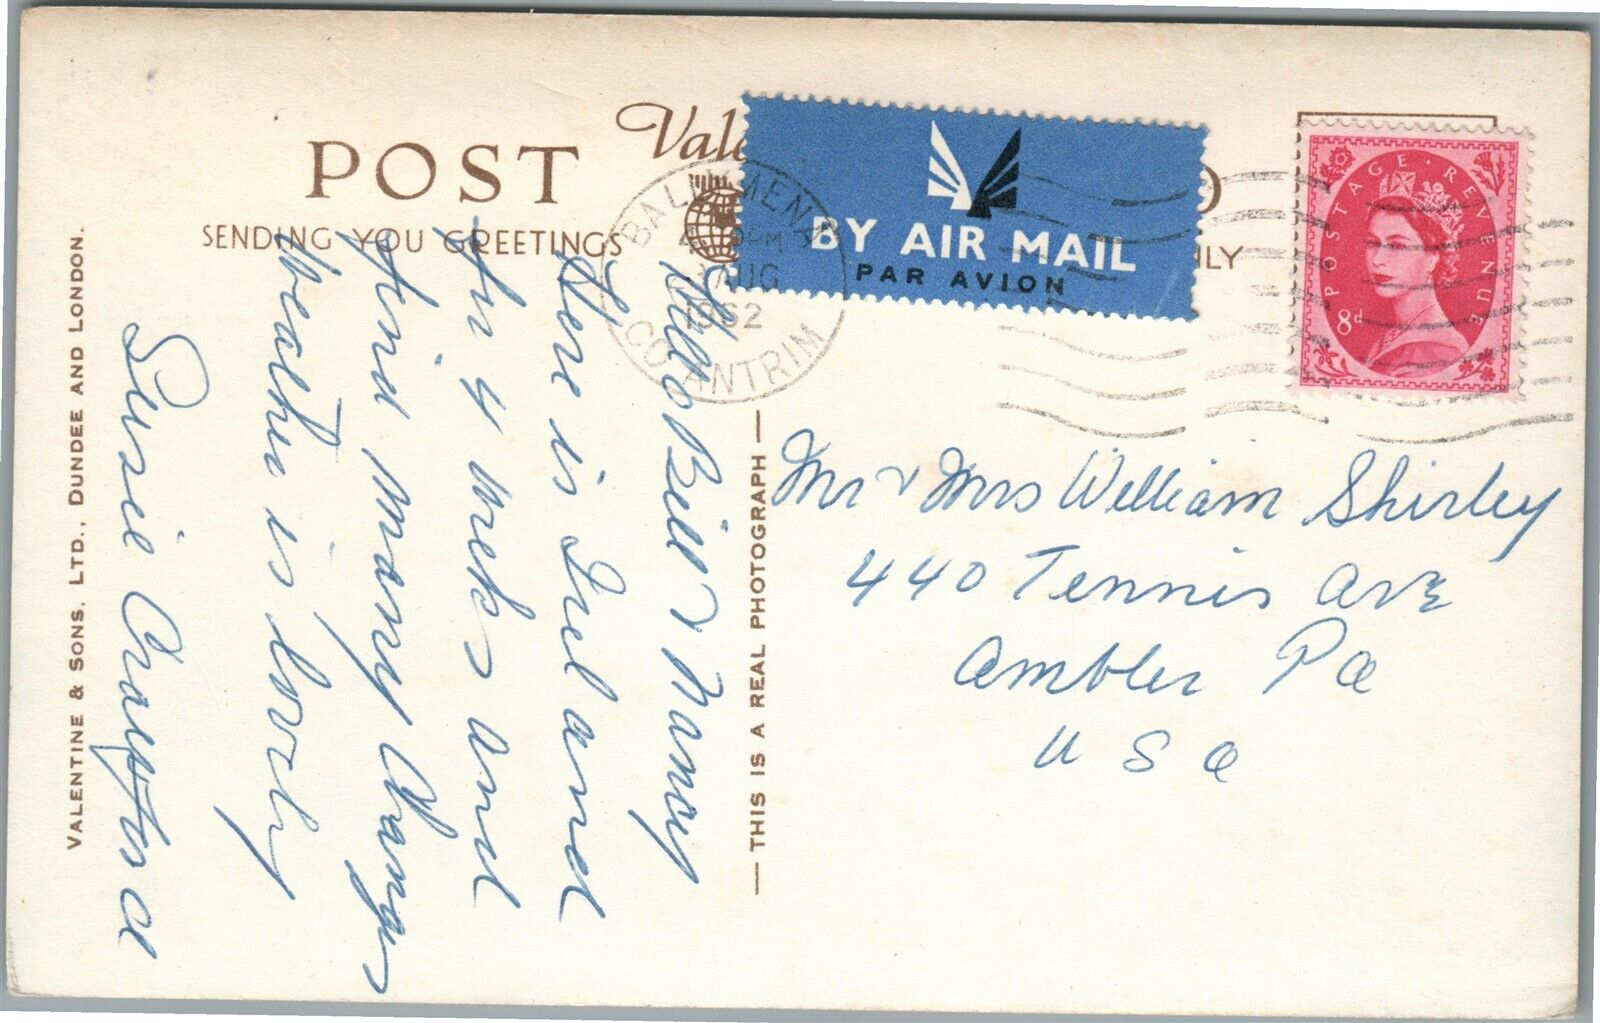 POST
SENDING YOU GREETINGS
BY AIR MAIL
PAR AVION
BALLYMENA
PM
AUG
1962
CO. ANTRIM
POSTAGE REVENUE
8d
VALENTINE & SONS, LTD., DUNDEE AND LONDON.
— THIS IS A REAL PHOTOGRAPH —
Hello Bill & Nancy
Here is Ireland
for 4 weeks and
find many Changes
Weather is lovely
Susie Crawford
Mr & Mrs William Shirley
440 Tennis Ave
Ambler Pa
U S a